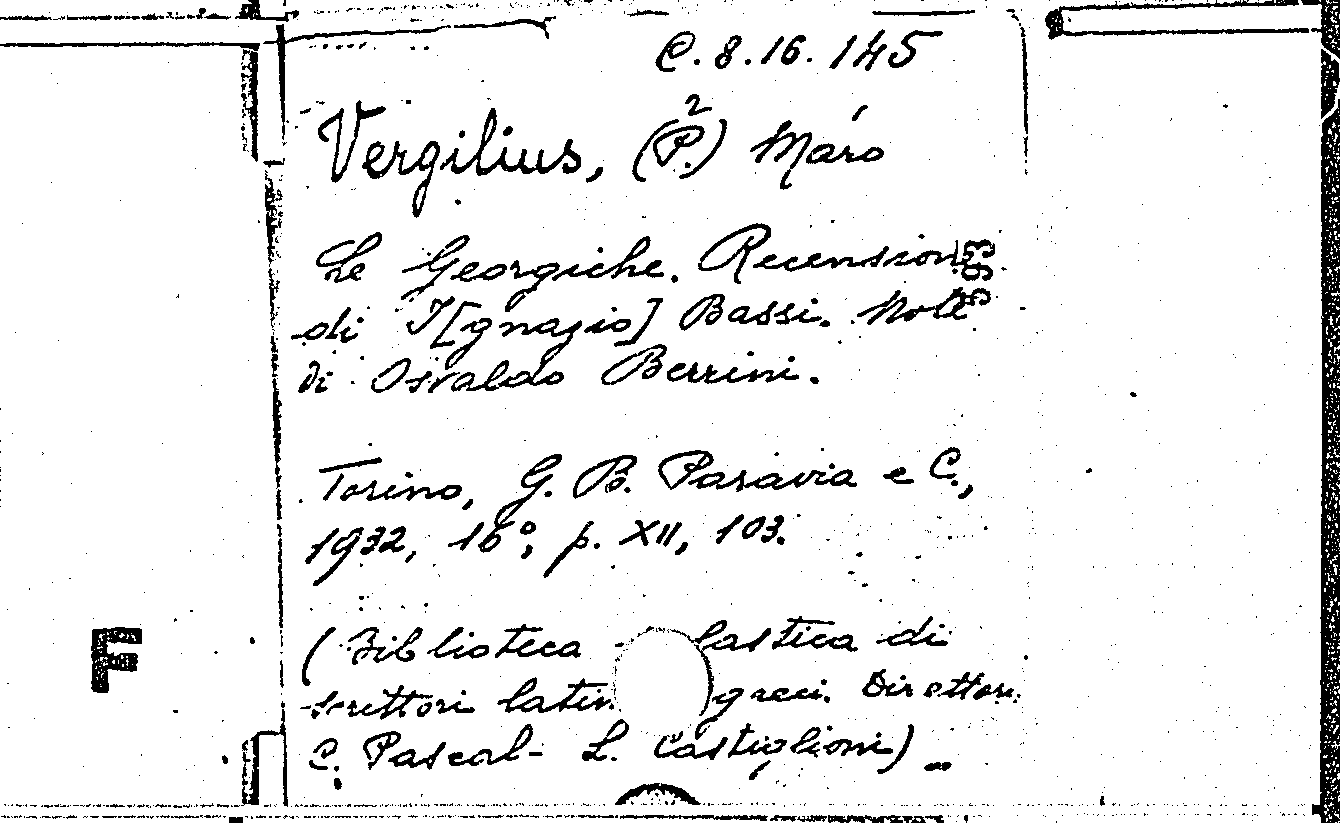 C. 8. 16. 145
Vergilius, (P.) Maro
2
Le Georgiche. Recensione
393
di I[gnazio] Bassi. Note
di Osvaldo Berrini.
Torino, G. B. Paravia e C.,
1932, 16°, p. XII, 103.
(Biblioteca lastica di
scrittori latin greci. Direttori
C. Pascal - L. Castiglioni) ..
F